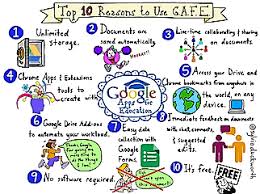 Top 10 Reasons to Use G.A.F.E.
1 Unlimited
storage.
2 Documents are
saved automatically.
3 Live-time collaborating / sharing
on documents.
4 Chrome Apps & Extensions
tools to
create with
Google
Apps for
Education
5 Access your Drive and
Chrome bookmarks from anywhere in
the world, on any
device.
6 Google Drive Add-ons
to automate your workload.
7 Easy data
collection with
Google
Forms
8 Immediate feedback on documents
with chat, comments,
& suggested
edits.
9 No software required.
10 It's
FREE.